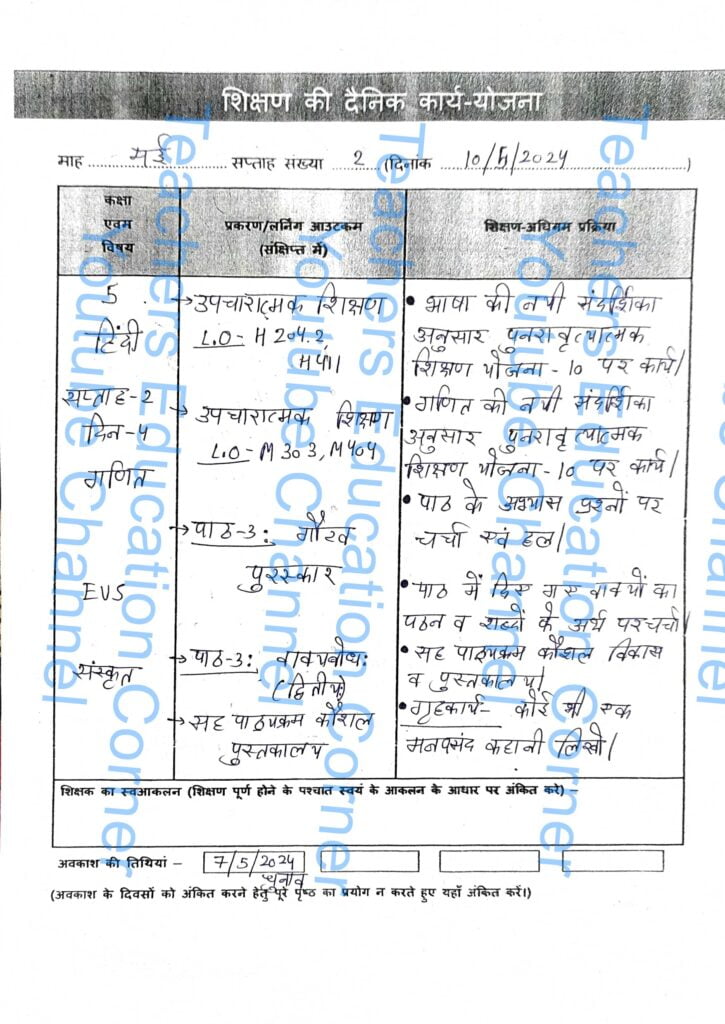 शिक्षण की दैनिक कार्य-योजना
माह मई सप्ताह संख्या 2 (दिनांक 10/5/2024)
कक्षा
एवम
विषय
प्रकरण/लर्निंग आउटकम
(संक्षिप्त में)
शिक्षण-अधिगम प्रक्रिया
5
हिंदी
सप्ताह-2
दिन-4
गणित
EVS
संस्कृत
→उपचारात्मक शिक्षण
L.O- H 204.2,
H411
→उपचारात्मक शिक्षण
L.O- M 303, M404
→पाठ-3: गौरव
पुरस्कार
→पाठ-3: वाक्यबोधः
(द्वितीय)
→सह पाठ्यक्रम कौशल
पुस्तकालय
• भाषा की नयी संदर्शिका
अनुसार पुनरावृत्यात्मक
शिक्षण योजना-10 पर कार्य।
• गणित की नयी संदर्शिका
अनुसार पुनरावृत्यात्मक
शिक्षण योजना-10 पर कार्य।
• पाठ के अभ्यास प्रश्नों पर
चर्चा एवं हल।
• पाठ में दिए गए वाक्यों का
पठन व शब्दों के अर्थ पर चर्चा।
• सह पाठ्यक्रम कौशल विकास
व पुस्तकालय।
• गृहकार्य- कोई भी एक
मनपसंद कहानी लिखो।
शिक्षक का स्वआकलन (शिक्षण पूर्ण होने के पश्चात स्वयं के आकलन के आधार पर अंकित करे) –
अवकाश की तिथियां – 7/5/2024
चुनाव
(अवकाश के दिवसों को अंकित करने हेतु पूरे पृष्ठ का प्रयोग न करते हुए यहाँ अंकित करें।)
Teachers Education Corner
Youtube Channel
Teachers Education Corner
Youtube Channel
Teachers Education Corner
Youtube Channel